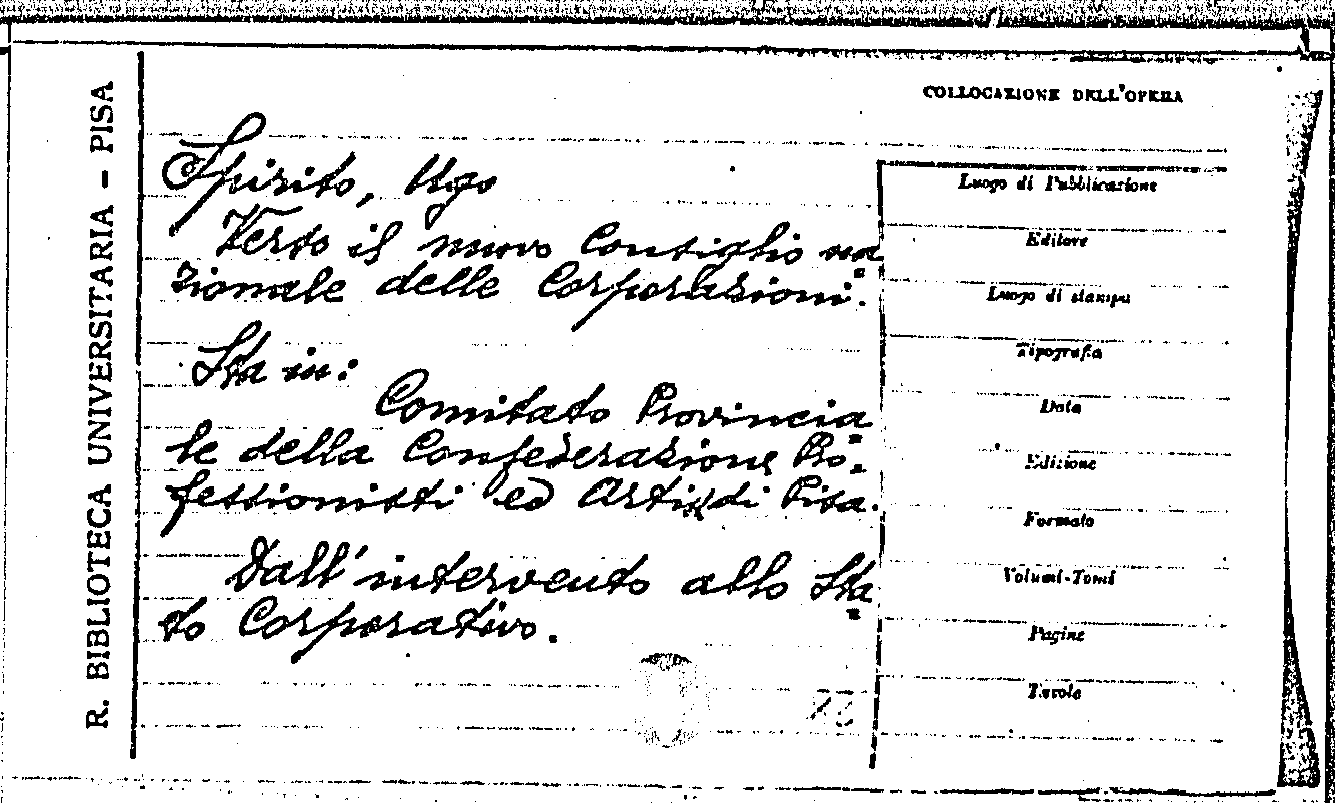 R. BIBLIOTECA UNIVERSITARIA - PISA
COLLOCAZIONE DELL'OPERA
Spirito, Ugo
Verso il nuovo Consiglio na=
zionale delle Corporazioni.
Sta in:
Comitato Provincia=
le della Confederazione Pro=
fessionisti ed Artisti di Pisa.
Dall'intervento allo Sta=
to Corporativo.
Luogo di Pubblicazione
Editore
Luogo di stampa
Tipografia
Data
Edizione
Formato
Volumi-Tomi
Pagine
Tavole